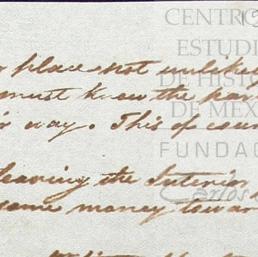 place not unlikely
must know the par
way. This of cour
leaving the Interior
some money towar
CENTRO
ESTUDI
DE HISTO
DE MÉX
FUNDAC
Carlos